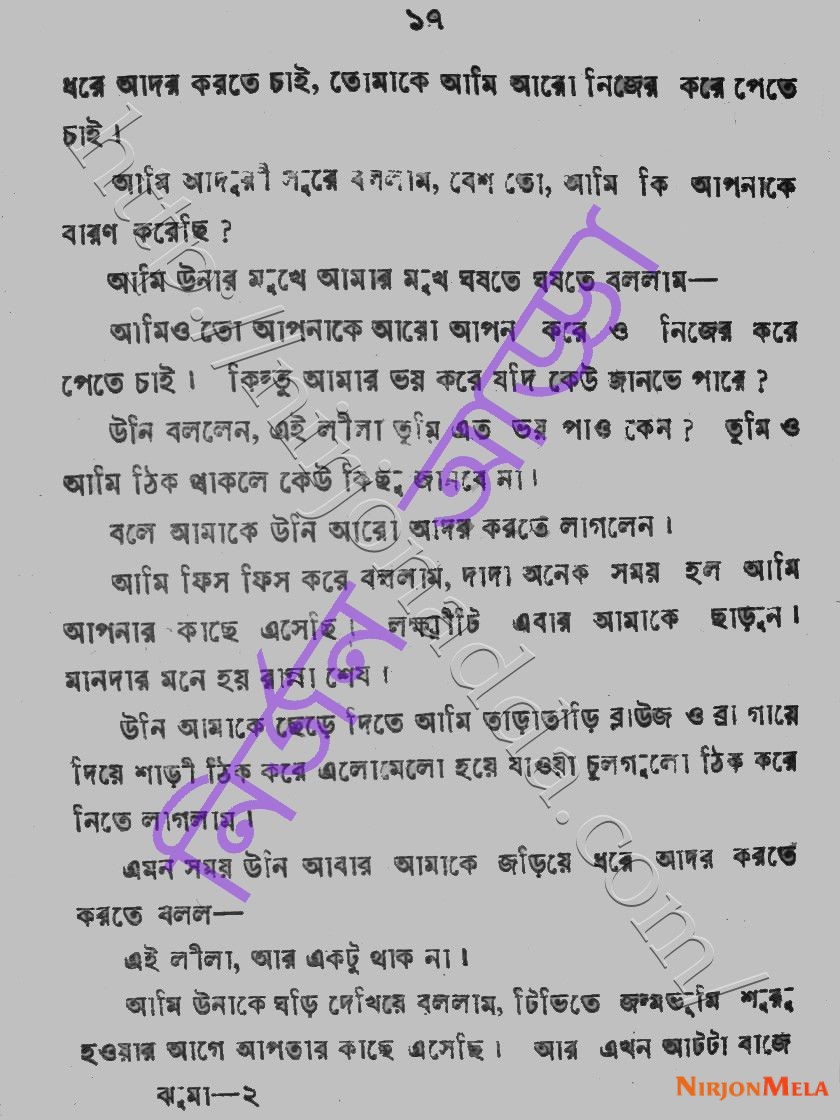 ১৭
ধরে আদর করতে চাই, তোমাকে আমি আরো নিজের করে পেতে
চাই।
আমি আদুরী সুরে বললাম, বেশ তো, আমি কি আপনাকে
বারণ করেছি ?
আমি উনার মুখে আমার মুখ ঘষতে ঘষতে বললাম—
আমিও তো আপনাকে আরো আপন করে ও নিজের করে
পেতে চাই। কিন্তু আমার ভয় করে যদি কেউ জানতে পারে ?
উনি বললেন, এই লীলা তুমি এত ভয় পাও কেন ? তুমি ও
আমি ঠিক থাকলে কেউ কিছু জানবে না।
বলে আমাকে উনি আরো আদর করতে লাগলেন।
আমি ফিস ফিস করে বললাম, দাদা অনেক সময় হল আমি
আপনার কাছে এসেছি। লক্ষ্মীটি এবার আমাকে ছাড়ুন।
মানদার মনে হয় রান্না শেষ।
উনি আমাকে ছেড়ে দিতে আমি তাড়াতাড়ি ব্লাউজ ও ব্রা গায়ে
দিয়ে শাড়ী ঠিক করে এলোমেলো হয়ে যাওয়া চুলগুলো ঠিক করে
নিতে লাগলাম।
এমন সময় উনি আবার আমাকে জড়িয়ে ধরে আদর করতে
করতে বলল—
এই লীলা, আর একটু থাক না।
আমি উনাকে ঘড়ি দেখিয়ে বললাম, টিভিতে জন্মভূমি শুরু
হওয়ার আগে আপতার কাছে এসেছি। আর এখন আটটা বাজে
ঝুমা—২
নির্জন আড্ডা
http://nirjonadda.com/
NIRJONMELA